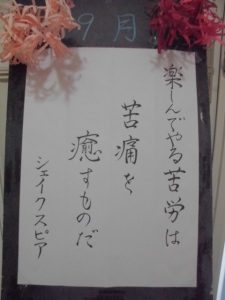 9月
楽しんでやる苦労は
苦痛を
癒すものだ
シェイクスピア